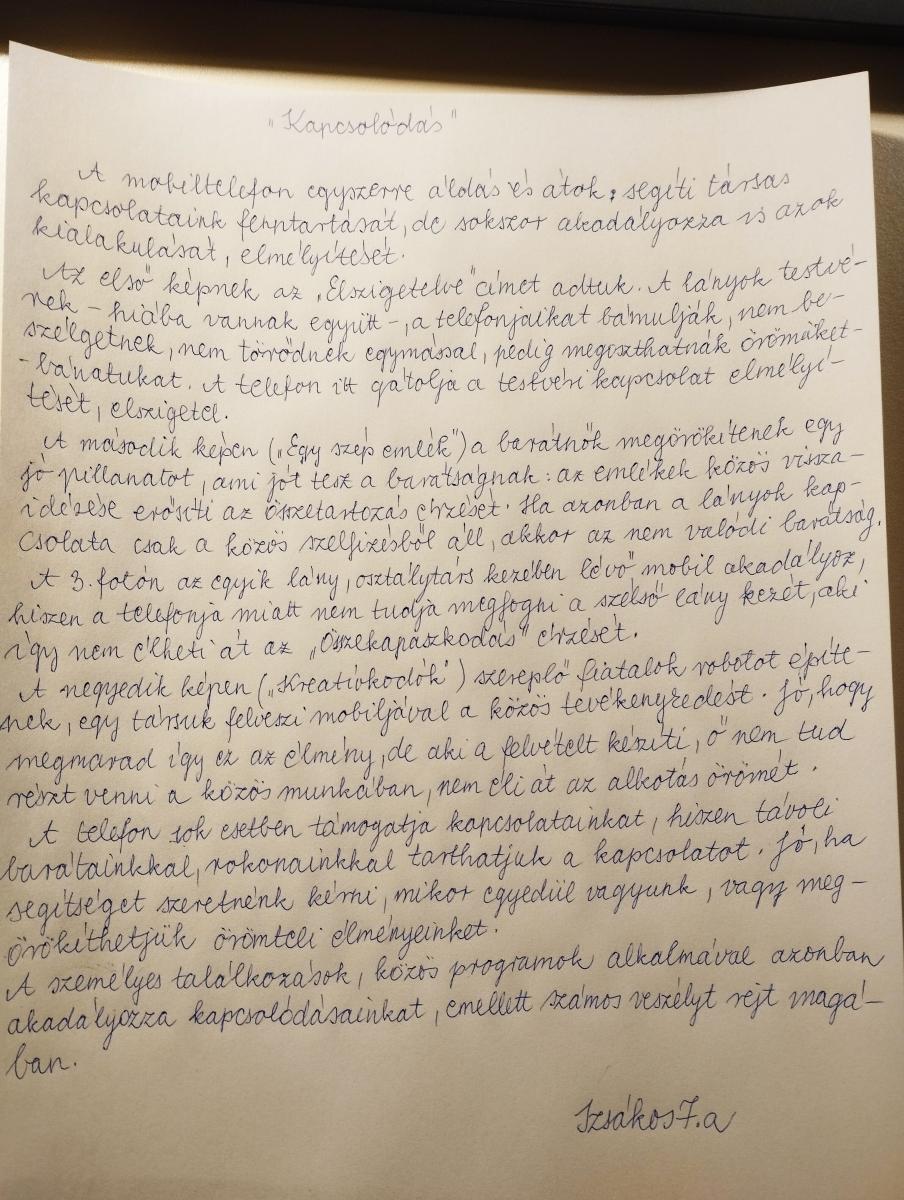 "Kapcsolódás"
A mobiltelefon egyszerre áldás és átok; segíti társas
kapcsolataink fenntartását, de sokszor akadályozza is azok
kialakulását, elmélyítését.
Az első képnek az „Elszigetelve" címet adtuk. A lányok testvé-
rek – hiába vannak együtt –, a telefonjaikat bámulják, nem be-
szélgetnek, nem törődnek egymással, pedig megoszthatnák örömüket-
-bánatukat. A telefon itt gátolja a testvéri kapcsolat elmélyí-
tését, elszigetel.
A második képen („Egy szép emlék") a barátnők megörökítenek egy
jó pillanatot, ami jót tesz a barátságnak: az emlékek közös vissza-
idézése erősíti az összetartozás érzését. Ha azonban a lányok kap-
csolata csak a közös szelfizésből áll, akkor az nem valódi barátság.
A 3. fotón az egyik lány, osztálytárs kezében lévő mobil akadályoz,
hiszen a telefonja miatt nem tudja megfogni a szélső lány kezét, aki
így nem élheti át az „Összekapaszkodás" érzését.
A negyedik képen („Kreatívkodók") szereplő fiatalok robotot építe-
nek, egy társuk felveszi mobiljával a közös tevékenykedést. Jó, hogy
megmarad így ez az élmény, de aki a felvételt készíti, ő nem tud
részt venni a közös munkában, nem éli át az alkotás örömét.
A telefon sok esetben támogatja kapcsolatainkat, hiszen távoli
barátainkkal, rokonainkkal tarthatjuk a kapcsolatot. Jó, ha
segítséget szeretnénk kérni, mikor egyedül vagyunk, vagy meg-
örökíthetjük örömteli élményeinket.
A személyes találkozások, közös programok alkalmával azonban
akadályozza kapcsolódásainkat, emellett számos veszélyt rejt magá-
ban.
Izsákos 7.a